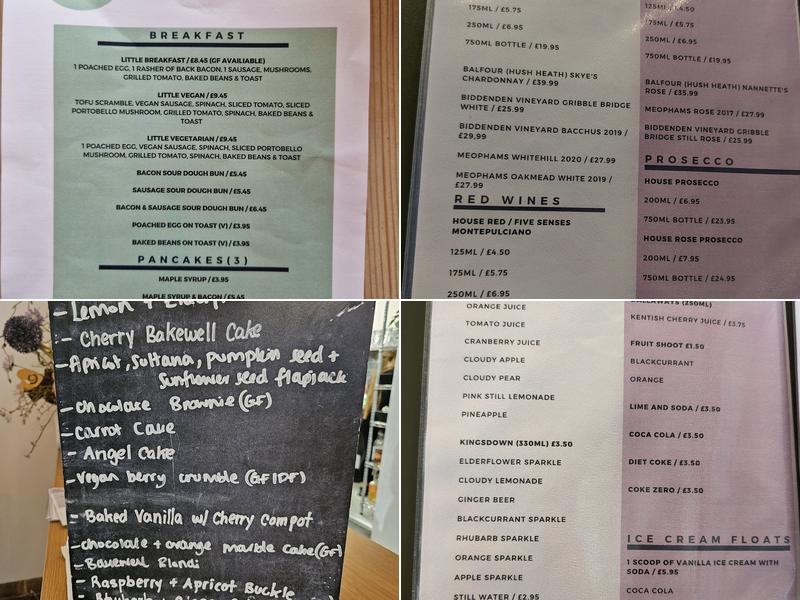 BREAKFAST
LITTLE BREAKFAST / £8.45 (GF AVAILIABLE)
1 POACHED EGG, 1 RASHER OF BACK BACON, 1 SAUSAGE, MUSHROOMS,
GRILLED TOMATO, BAKED BEANS & TOAST
LITTLE VEGAN / £9.45
TOFU SCRAMBLE, VEGAN SAUSAGE, SPINACH, SLICED TOMATO, SLICED
PORTOBELLO MUSHROOM, GRILLED TOMATO, SPINACH, BAKED BEANS &
TOAST
LITTLE VEGETARIAN / £9.45
1 POACHED EGG, VEGAN SAUSAGE, SPINACH, SLICED PORTOBELLO
MUSHROOM, GRILLED TOMATO, SPINACH, BAKED BEANS & TOAST
BACON SOUR DOUGH BUN / £5.45
SAUSAGE SOUR DOUGH BUN / £5.45
BACON & SAUSAGE SOUR DOUGH BUN / £6.45
POACHED EGG ON TOAST (V) / £3.95
BAKED BEANS ON TOAST (V) / £3.95
PANCAKES(3)
MAPLE SYRUP / £3.95
MAPLE SYRUP & BACON / £5.45
175ML / £5.75
250ML / £6.95
750ML BOTTLE / £19.95
BALFOUR (HUSH HEATH) SKYE'S
CHARDONNAY / £39.99
BIDDENDEN VINEYARD GRIBBLE BRIDGE
WHITE / £25.99
BIDDENDEN VINEYARD BACCHUS 2019 /
£29.99
MEOPHAMS WHITEHILL 2020 / £27.99
MEOPHAMS OAKMEAD WHITE 2019 /
£27.99
RED WINES
HOUSE RED / FIVE SENSES
MONTEPULCIANO
125ML / £4.50
175ML / £5.75
250ML / £6.95
125ML / £4.50
175ML / £5.75
250ML / £6.95
750ML BOTTLE / £19.95
BALFOUR (HUSH HEATH) NANNETTE'S
ROSE / £35.99
MEOPHAMS ROSE 2017 / £27.99
BIDDENDEN VINEYARD GRIBBLE
BRIDGE STILL ROSE / £25.99
PROSECCO
HOUSE PROSECCO
200ML / £6.95
750ML BOTTLE / £23.95
HOUSE ROSE PROSECCO
200ML / £7.95
750ML BOTTLE / £24.95
- Lemon +
- Cherry Bakewell Cake
- Apricot, Sultana, pumpkin seed +
Sunflower seed flapjack
- chocolate Brownie (GF)
- Carrot Cake
- Angel Cake
- Vegan berry crumble (GF/DF)
- Baked Vanilla w/ Cherry Compot
- chocolate + orange marble cake (GF)
- Raspberry + Apricot Buckle
ORANGE JUICE
TOMATO JUICE
CRANBERRY JUICE
CLOUDY APPLE
CLOUDY PEAR
PINK STILL LEMONADE
PINEAPPLE
KINGSDOWN (330ML) £3.50
ELDERFLOWER SPARKLE
CLOUDY LEMONADE
GINGER BEER
BLACKCURRANT SPARKLE
RHUBARB SPARKLE
ORANGE SPARKLE
APPLE SPARKLE
STILL WATER / £2.95
(250ML)
KENTISH CHERRY JUICE / £3.75
FRUIT SHOOT £1.50
BLACKCURRANT
ORANGE
LIME AND SODA / £3.50
COCA COLA / £3.50
DIET COKE / £3.50
COKE ZERO / £3.50
ICE CREAM FLOATS
1 SCOOP OF VANILLA ICE CREAM WITH
SODA / £5.95
COCA COLA